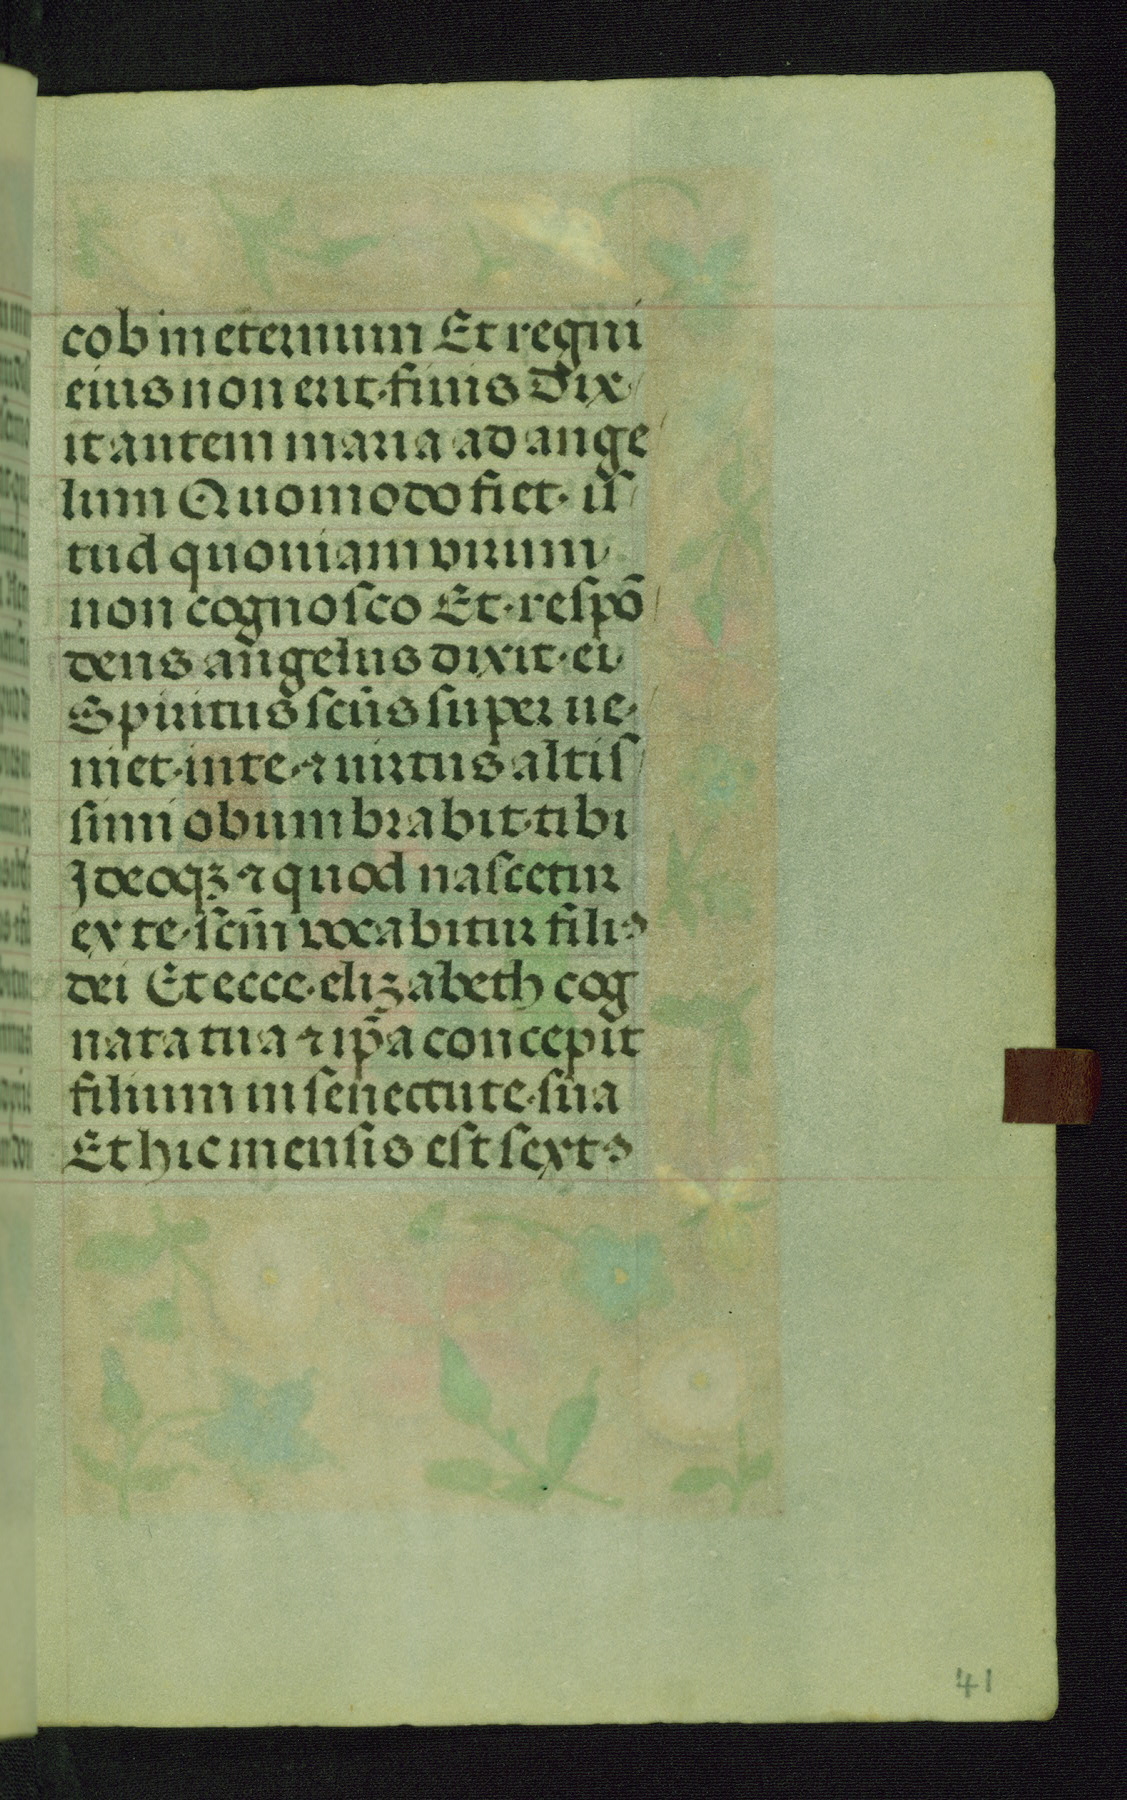 cob in eternum Et regni
eius non erit finis Dix
it autem maria ad ange
lum Quomodo fiet is
tud quoniam virum
non cognosco Et respō
dens angelus dixit ei
Spiritus scūs super ue
niet in te ⁊ uirtus altis
simi obumbrabit tibi
Ideoqꝫ ⁊ quod nascetur
ex te scm̄ vocabitur filiꝰ
dei Et ecce elizabeth cog
nata tua ⁊ ip̄a concepit
filium in senectute sua
Et hic mensis est sextꝰ
41